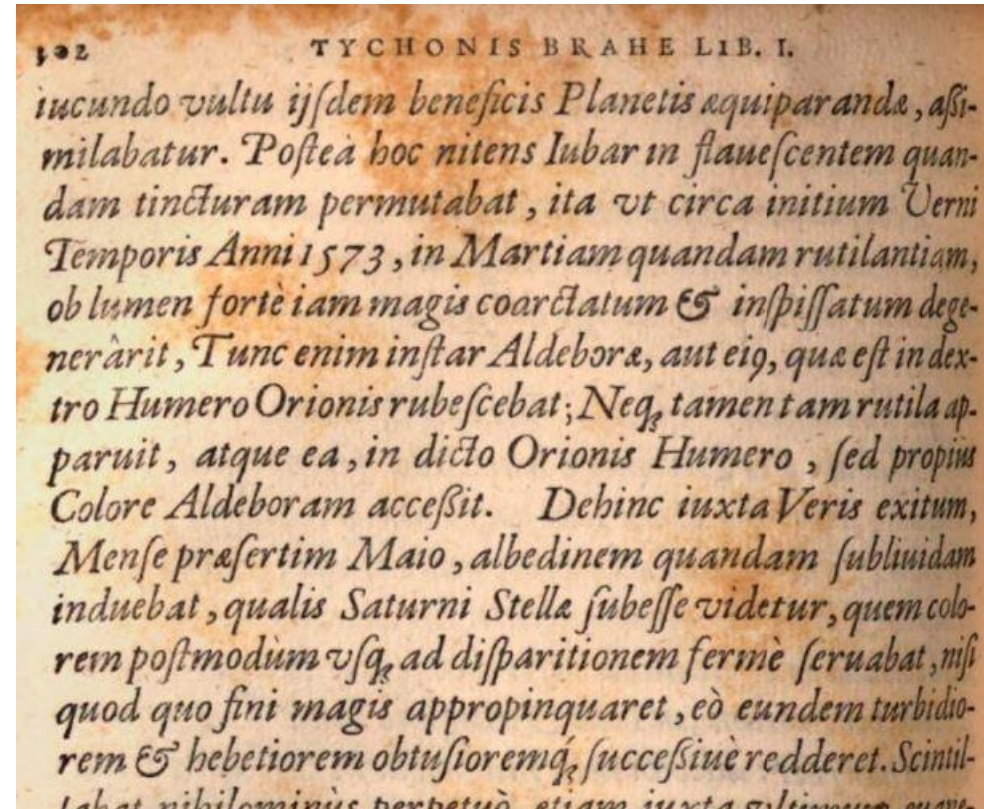 302 TYCHONIS BRAHE LIB. I.
iucundo vultu ijſdem beneficis Planetis æquiparandæ, aßi-
milabatur. Poſteà hoc nitens Iubar in flaueſcentem quan-
dam tincturam permutabat, ita vt circa initium Verni
Temporis Anni 1573, in Martiam quandam rutilantiam,
ob lumen fortè iam magis coarctatum & inſpiſſatum dege-
nerârit, Tunc enim inſtar Aldeboræ, aut eiꝰ, quæ eſt in dex-
tro Humero Orionis rubeſcebat; Neqꝫ tamen tam rutila ap-
paruit, atque ea, in dicto Orionis Humero, ſed propius
Colore Aldeboram acceßit. Dehinc iuxta Veris exitum,
Menſe præſertim Maio, albedinem quandam ſubliuidam
induebat, qualis Saturni Stellæ ſubeſſe videtur, quem colo-
rem poſtmodùm vſqꝫ ad diſparitionem fermè ſeruabat, niſi
quod quo fini magis appropinquaret, eò eundem turbidio-
rem & hebetiorem obtuſioremq́ꝫ ſucceßiuè redderet. Scintil-
labat nihilominùs perpetuò, etiam iuxta